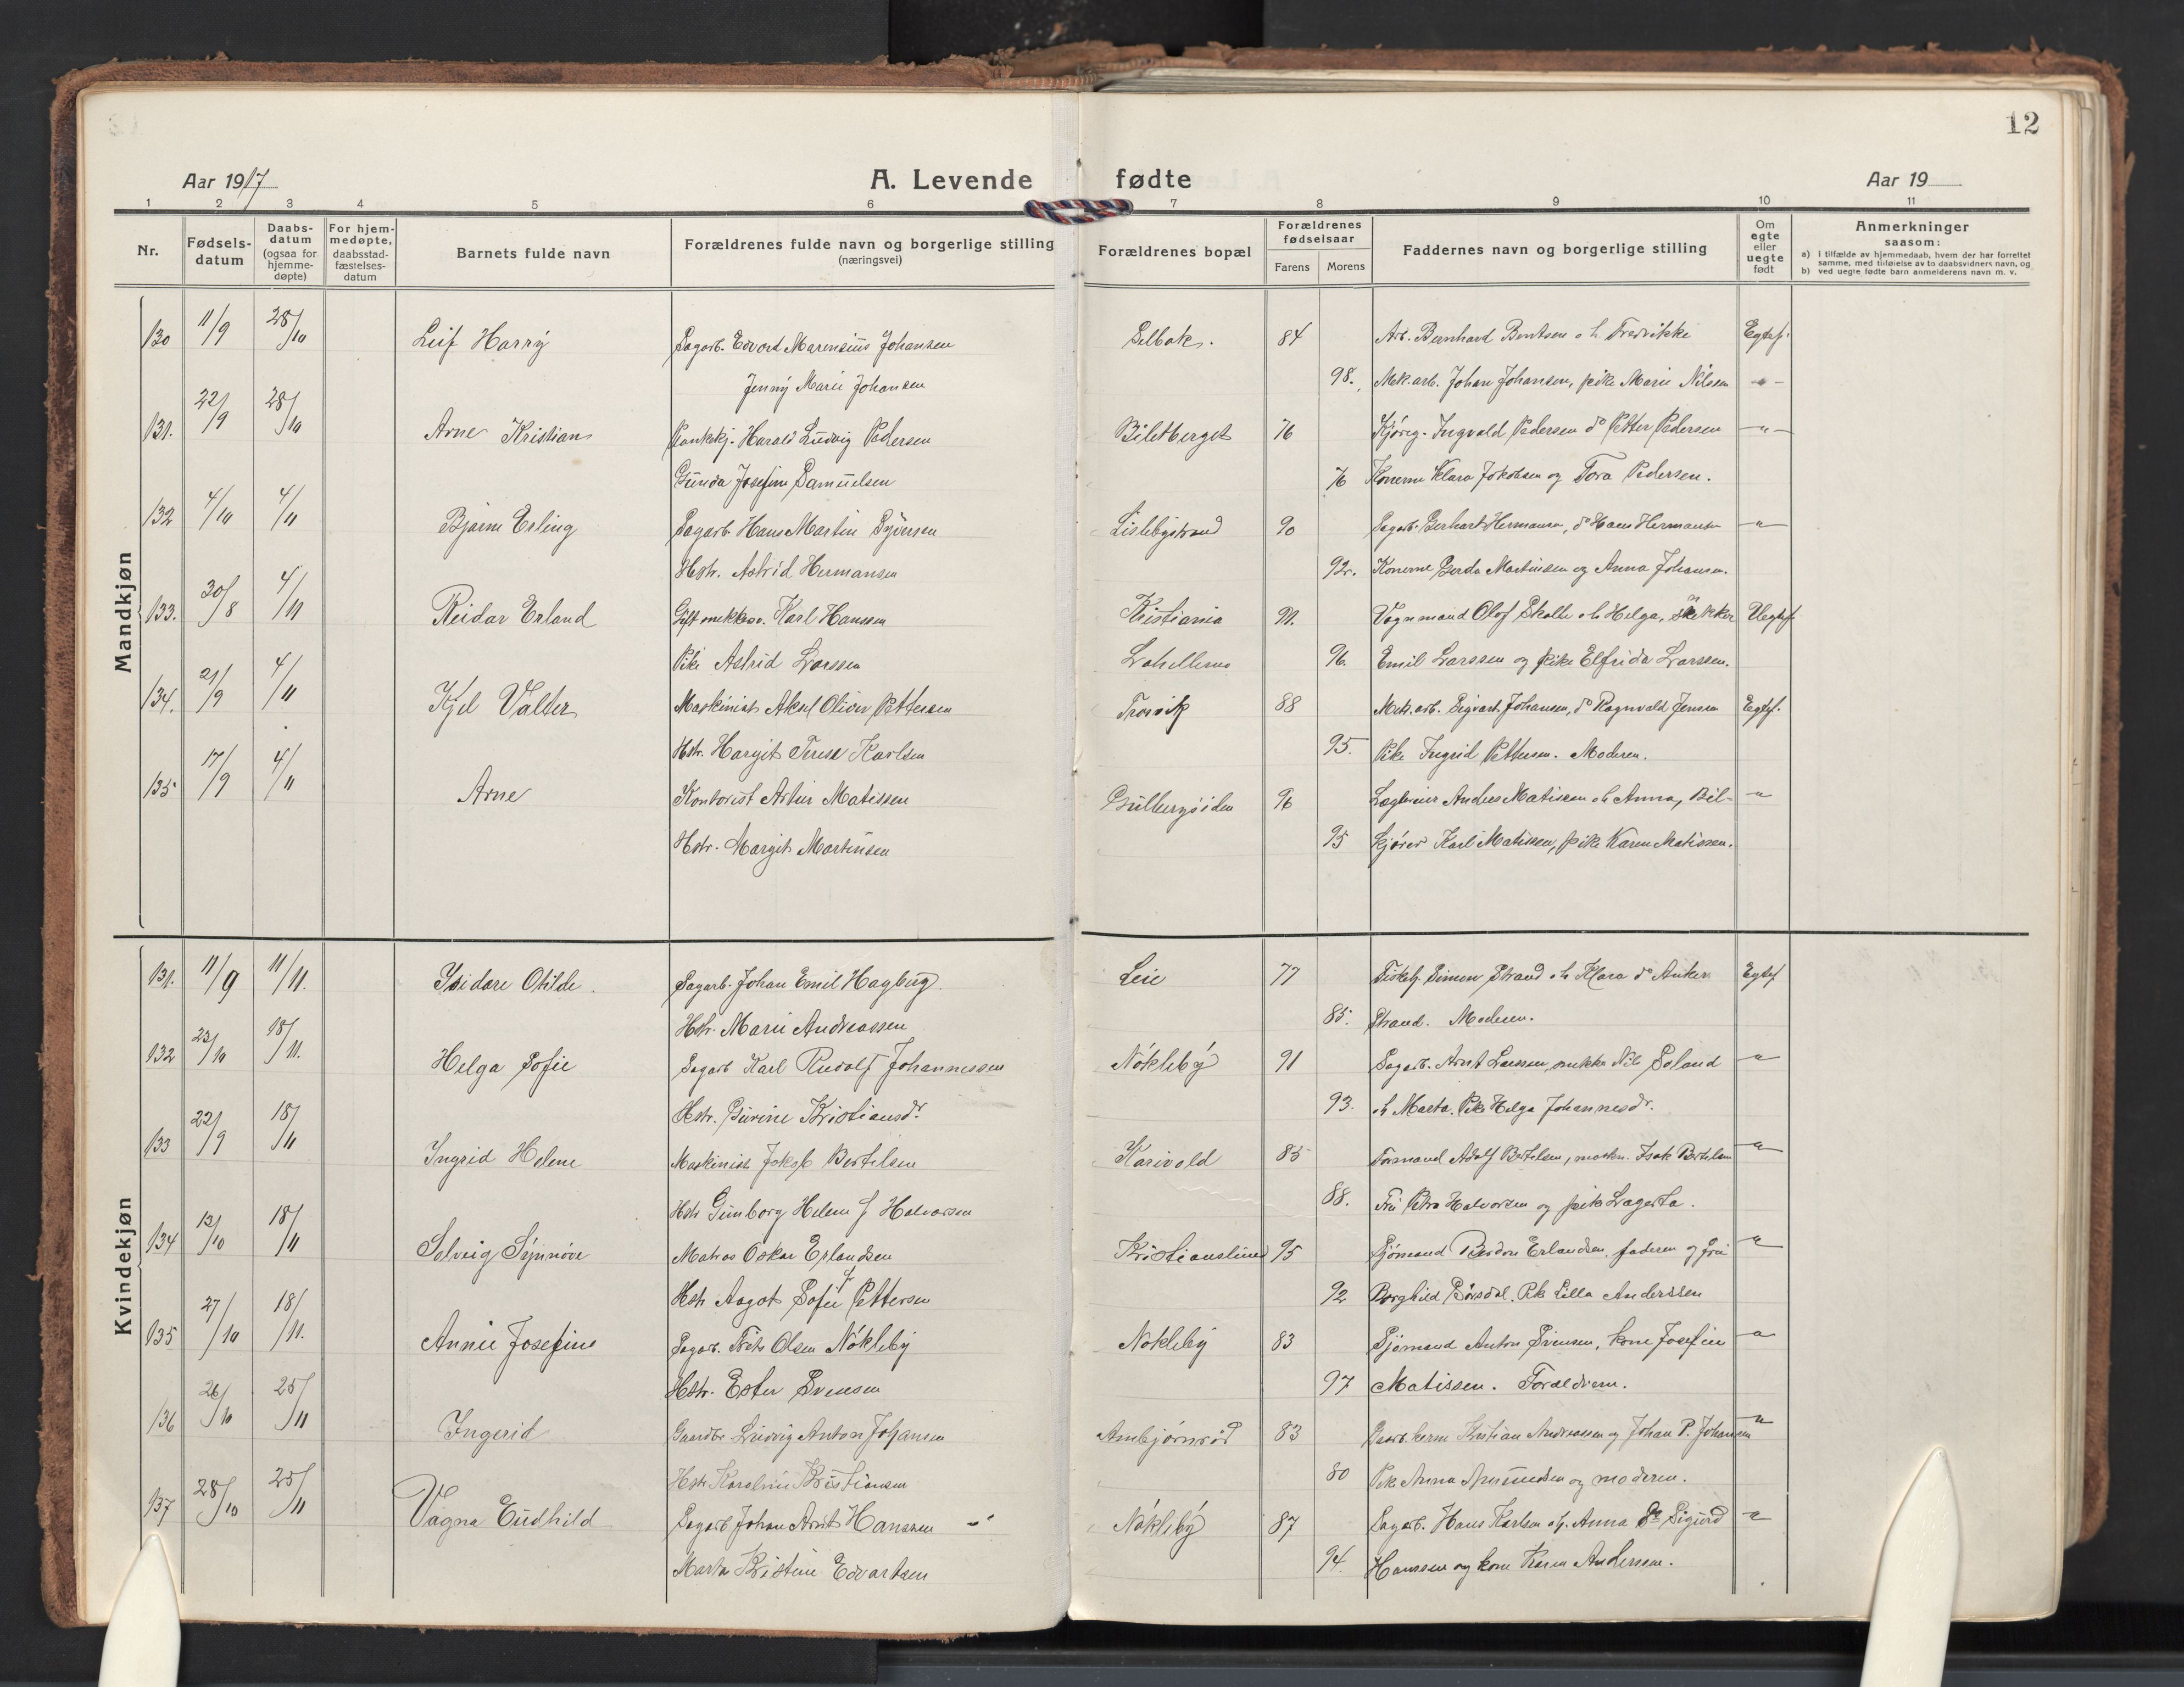 12
Aar 1917
A. Levende fødte
Aar 19
1 2 3 4 5 6 7 8 9 10 11
Nr.
Fødsels-
datum
Daabs-
datum
(ogsaa for
hjemme-
døpte)
For hjem-
medøpte,
daabsstad-
fæstelses-
datum
Barnets fulde navn
Forældrenes fulde navn og borgerlige stilling
(næringsvei)
Forældrenes bopæl
Forældrenes
fødselsaar
Farens Morens
Faddernes navn og borgerlige stilling
Om
egte
eller
uegte
født
Anmerkninger
saasom:
a) i tilfælde av hjemmedaab, hvem der har forrettet
samme, med tilføielse av to daabsvidners navn, og
b) ved uegte fødte barn anmelderens navn m. v.
Mandkjøn
130 11/9 28/10 Leif Harry Sagarb. Edvard Marensius Johansen Selbak. 84 Arb. Bernhard Bentsen o h Fredrikke Egtef.
Jenny Marie Johansen 98. Mek. arb. Johan Johansen, pike Marie Nilsen -"-
131. 22/9 28/10 Arne Kristian Plankekj. Harald Ludvig Pedersen Biletberget 76 Kjøreg. Ingvald Pedersen do Petter Pedersen -"-
Gunda Josefine Samuelsen 76 Konerne Klara Jakobsen og Tora Pedersen.
132 4/10 4/11 Bjarne Erling Sagarb. Hans Martin Syversen Lislebystrand 90 Sagarb. Gerhart Hermansen, do Hans Hermansen "
Hstr. Astrid Hermansen 92. Konerne Gerda Martinsen og Anna Johansen.
133. 30/8 4/11 Reidar Erland Gift snekkersv. Karl Hanssen Kristiania 91. Vognmand Olof Skolle o h Helga, snekker Uegtef
Pike Astrid Larssen Lahellemo 96. Emil Larssen og pike Elfrida Larssen.
134. 21/9 4/11 Kjel Valter Maskinist Aksel Oliver Pettersen Trosvik 88 Mek. arb. Sigvart Johansen, do Ragnvald Jensen Egtef.
Hstr. Hargit Terese Karlsen 95. Pike Ingrid Pettersen. Moderen.
135 17/9 4/11 Arne Kontorist Artur Matissen Gullbergsiden 96 Anders Matissen o h Anna, Bil- "
Hstr. Margit Martinsen 95 kjører Karl Matissen, pike Karen Matissen.
Kvindekjøn
131. 11/9 11/11. Isidore Otilde. Sagarb. Johan Emil Hagbug. Leie 77 Fiskeh. Simon Strand o h Klara do Anker Egtef
Hstr. Marie Andreassen 85. Strand. Moderen.
132 23/10 18/11. Helga Sofie Sagarb Karl Rudolf Johannessen Nökleby 91 Sagarb. Arnt Larssen, snekker Nils Soland "
Hstr. Gurine Kristiansdr. 93. o h Marta. Pike Helga Johannesdr.
133 22/9 18/11 Ingrid Helene Maskinist Jakob Bertelsen Karivold 85 Formand Adolf Bertelsen, maskn. Isak Bertelsen "
Hstr Gunborg Helene f Halvorsen 88. Fru Petra Halvorsen og pike Lagerta.
134 13/10 18/11 Solveig Synnöve Matros Oskar Erlandsen Kristianslund 95 Sjömand Erlandsen, faderen og fru "
Hstr Aagot Sofie f Pettersen 92 Borghild Pike Lilla Anderssen
135 27/10 18/11. Annie Josefine Sagarb. Frits Olsen Nökleby Nökleby 83 Sjömand Anton Svensen, kone Josefine "
Hstr. Ester Svensen 97 Matissen. Forældrene.
136 26/10 25/11 Ingerid Gaardbr Ludvig Anton Johansen Ambjörnröd 83 Kristian Andreassen og Johan P. Johansen "
Hstr Karoline Kristiansen 80 Pike Anna og moderen.
137 28/10 25/11 Vagna Eudhild Sagarb Johan Arnt Hanssen Nökleby 87 Sagarb. Hans Karlsen o h. Anna Sigurd "
Marta Kristine Edvartsen 94. Hanssen og kone Karen Andersen.